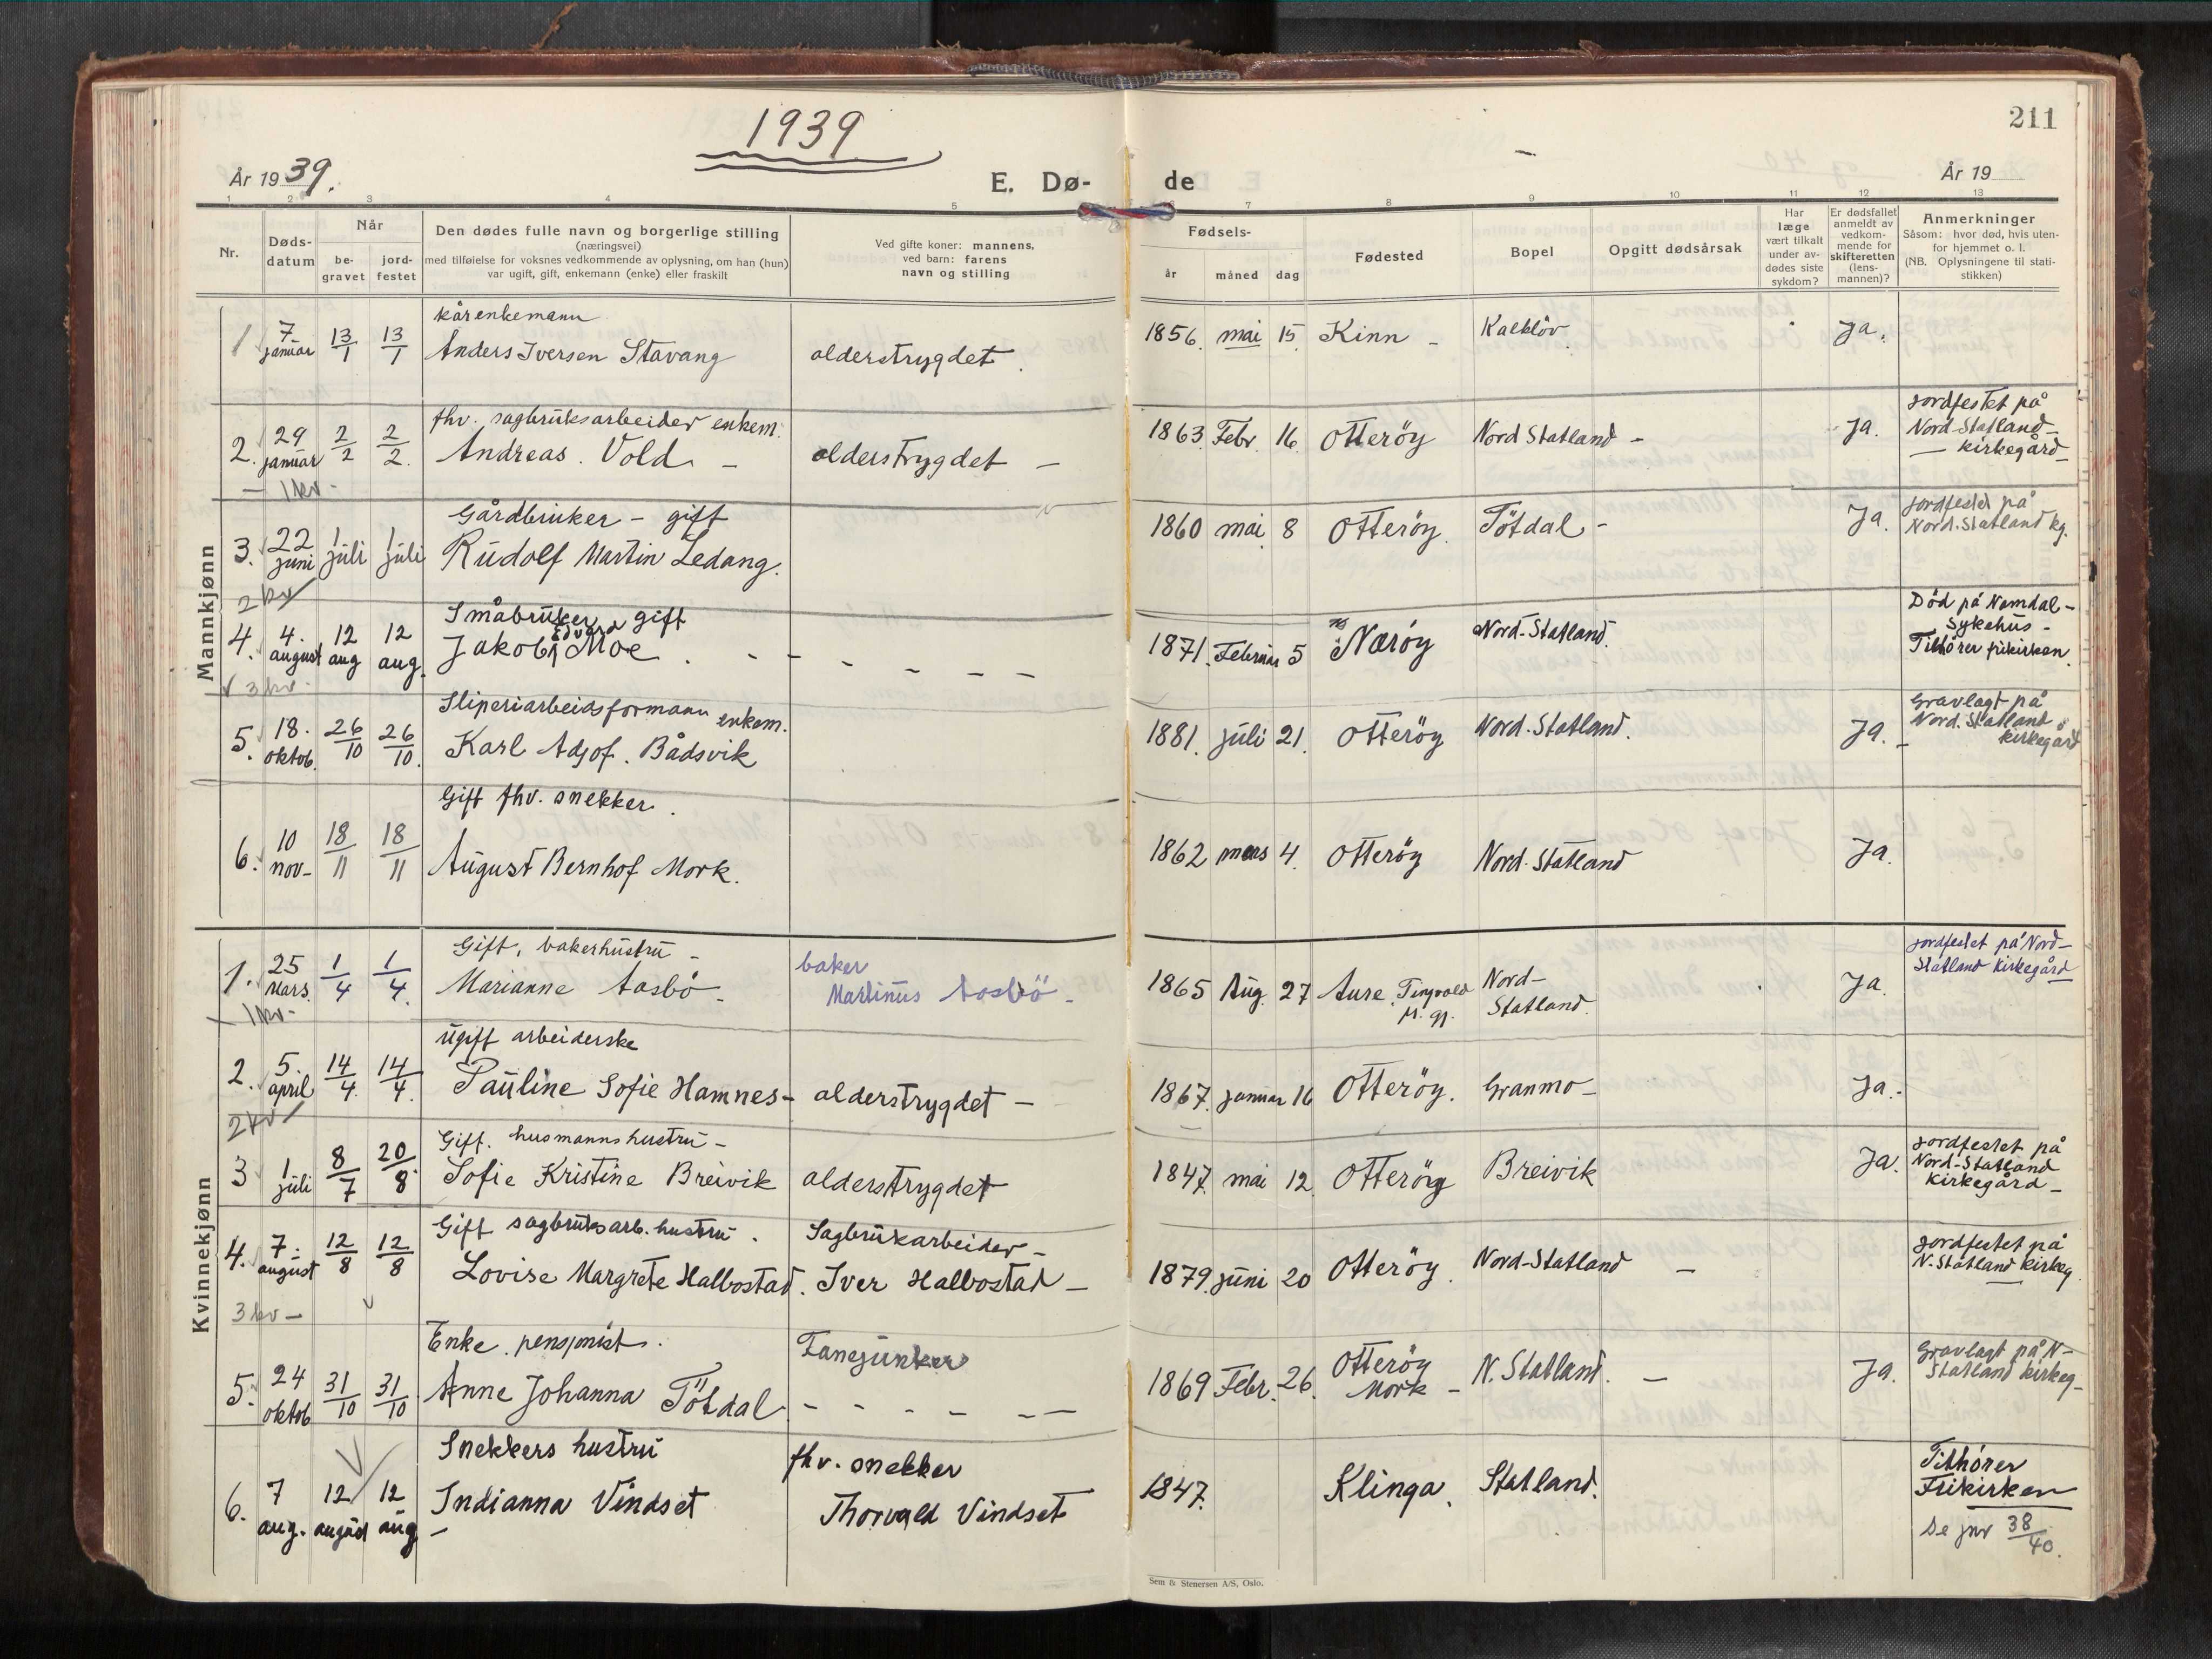 1939
211
År 1939.
E. Dø-
de
År 19
1 2 3 4 5 6 7 8 9 10 11 12 13
Nr.
Døds-
datum
Når
be-
gravet
jord-
festet
Den dødes fulle navn og borgerlige stilling
(næringsvei)
med tilføielse for voksnes vedkommende av oplysning, om han (hun)
var ugift, gift, enkemann (enke) eller fraskilt
Ved gifte koner: mannens,
ved barn: farens
navn og stilling
Fødsels-
år måned dag
Fødested
Bopel
Opgitt dødsårsak
Har
læge
vært tilkalt
under av-
dødes siste
sykdom?
Er dødsfallet
anmeldt av
vedkom-
mende for
skifteretten
(lens-
mannen)?
Anmerkninger
Såsom: hvor død, hvis uten-
for hjemmet o. l.
(NB. Oplysningene til stati-
stikken)
Mannkjønn
kårenkemann
1 7 januar 13/1 13/1 Anders Iversen Stavang alderstrygdet. 1856. mai 15 Kinn - Kalkløv. Ja.
fhv. sagbruksarbeider enkem.
2. 29 januar 2/2 2/2. Andreas Vold - alderstrygdet - 1863. Febr. 16. Otterøy Nord Statland - Ja.
jordfestet på
Nord-Statland
- kirkegård -
- 1 kv -
Gårdbruker - gift
3. 22 juni 1 juli 1 juli Rudolf Martin Ledang. 1860 mai 8 Otterøy. Tötdal - Ja.
jordfestet på
Nord-Statland kg.
2 kv
Småbruker gift
4. 4. august 12 aug 12 aug. Jakob Edvard Moe. - - - - - - 1871. Februar 5 Nærøy Nord-Statland.
Död på Namdal-
sykehus -
Tilhörer frikirken.
3 kv -
Sliperiarbeidsformann enkem.
5. 18. oktob. 26/10 26/10. Karl Adjof. Bådsvik 1881. juli 21. Otterøy Nord-Statland. Ja. -
Gravlagt på
Nord-Statland
kirkegård
Gift fhv. snekker.
6. 10 nov- 18/11 18/11 August Bernhof Mork. 1862 mars 4. Otterøy Nord-Statland Ja.
Kvinnekjønn
Gift, bakerhustru -
baker
1. 25 Mars. 1/4 1/4. Marianne Aasbø - Martinus Aasbö - 1865 Aug. 27 Aure. Tingvold Nord-
Statland. Ja.
jordfestet på Nord-
Statland kirkegård
- 1 kv -
ugift arbeiderske
2. 5. april 14/4. 14/4. Pauline Sofie Hamnes - alderstrygdet - 1867. januar 16 Otterøy. Granmo - Ja. -
2 kv
Gift. husmannshustru -
3 1 juli 8/7 20/8. Sofie Kristine Breivik alderstrygdet 1847. mai 12. Otterøy Breivik Ja.
jordfestet på
Nord-Statland
kirkegård -
Gift sagbruksarb. hustru.
Sagbrukarbeider -
4. 7. august 12/8 12/8 Lovise Margrete Halbostad. Iver Halbostad - 1879. juni 20 Otterøy. Nord-Statland -
jordfestet på
N. Statland kirkeg.
3 kv -
Enke. pensjonist.
Fanejunker
5. 24 oktob 31/10 31/10 Anne Johanna Tötdal - - - - - - 1869 Febr. 26. Otterøy
Mork - N. Statland. - Ja.
Gravlagt på N-
Statland kirkeg -
Snekkers hustru
fhv. snekker
6. 7 aug. 12 august 12 aug - Indianna Vindset Thorvald Vindset 1847. Klinga. Statland.
Tilhörer
Frikirken
se jnr 38/40.
Sem & Stenersen A/S, Oslo.